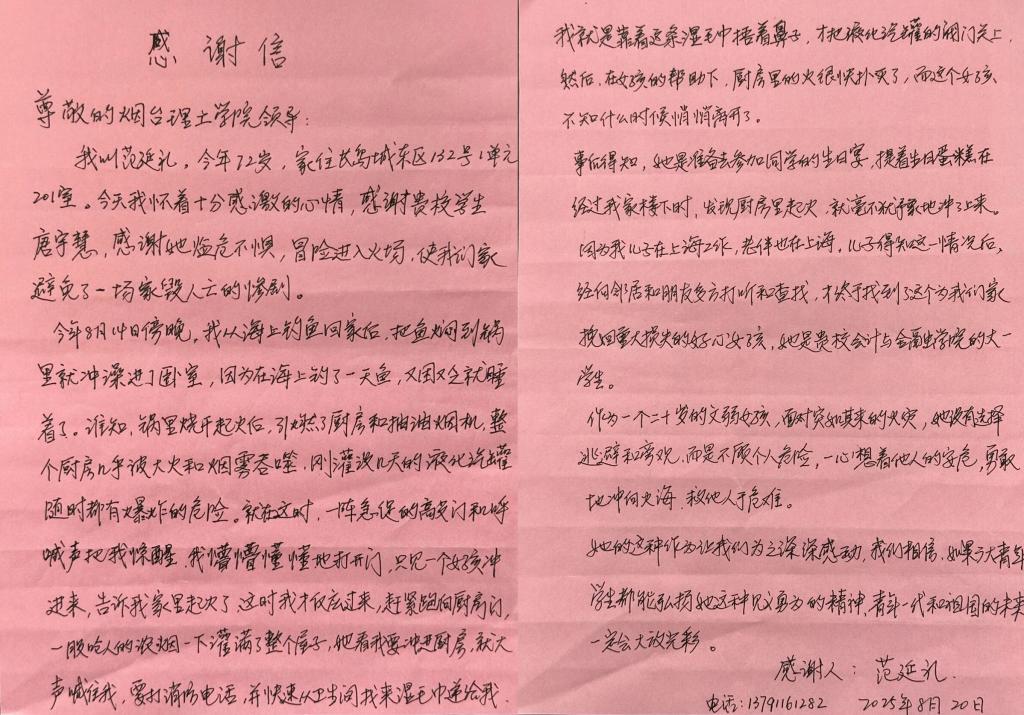 感谢信
尊敬的烟台理工学院领导：
我叫范延礼，今年72岁，家住长岛城东区132号1单元
201室。今天我怀着十分感激的心情，感谢贵校学生
唐宇慧，感谢她临危不惧，冒险进入火场，使我们家
避免了一场家毁人亡的惨剧。
今年8月14日傍晚，我从海上钓鱼回家后，把鱼焖到锅
里就冲澡进了卧室，因为在海上钓了一天鱼，又困又乏就睡
着了。谁知，锅里烧干起火后，引燃了厨房和抽油烟机，整
个厨房几乎被大火和烟雾吞噬，刚灌没几天的液化汽罐
随时都有爆炸的危险。就在这时，一阵急促的敲门和呼
喊声把我惊醒，我懵懵懂懂地打开门，只见一个女孩冲
进来，告诉我家里起火了，这时我才反应过来，赶紧跑向厨房门，
一股呛人的浓烟一下灌满了整个屋子，她看我要冲进厨房，就大
声喊住我，要打消防电话，并快速从卫生间找来湿毛巾递给我，
我就是靠着这条湿毛巾捂着鼻子，才把液化汽罐的阀门关上，
然后，在女孩的帮助下，厨房里的火很快扑灭了，而这个女孩，
不知什么时候悄悄离开了。
事后得知，她是准备去参加同学的生日宴，提着生日蛋糕在
经过我家楼下时，发现厨房里起火，就毫不犹豫地冲了上来。
因为我儿子在上海工作，老伴也在上海，儿子得知这一情况后，
经向邻居和朋友多方打听和查找，才终于找到了这个为我们家
挽回重大损失的好心女孩，她是贵校会计与金融学院的大一
学生。
作为一个二十岁的文弱女孩，面对突如其来的火灾，她没有选择
逃避和旁观，而是不顾个人危险，一心想着他人的安危，勇敢
地冲向火海，救他人于危难。
她的这种作为让我们为之深深感动，我们相信，如果广大青年
学生都能弘扬她这种见义勇为的精神，青年一代和祖国的未来
一定会大放光彩。
感谢人：范延礼
电话：13791161282 2025年8月20日